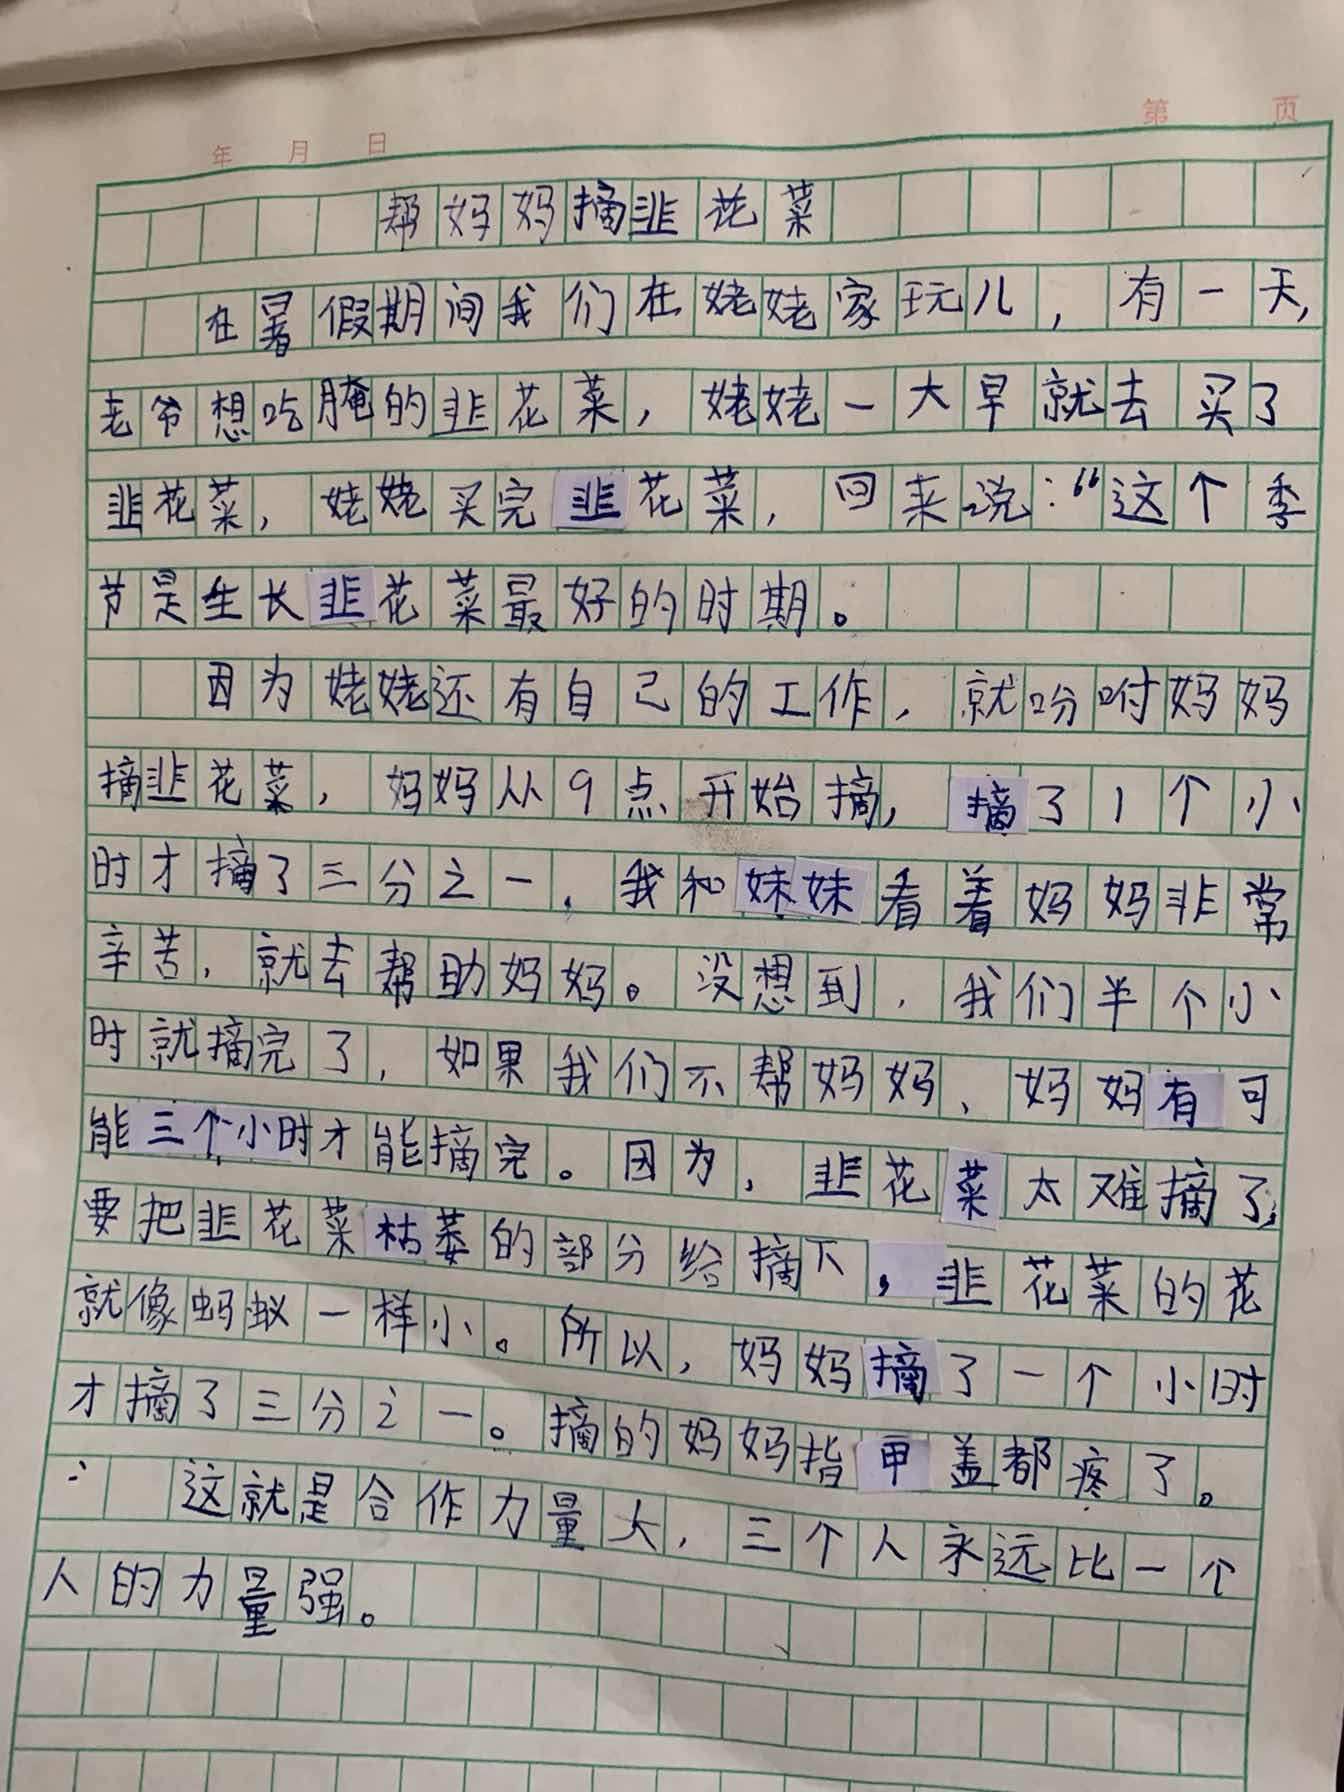 第 页
年 月 日
帮妈妈摘韭花菜
在暑假期间我们在姥姥家玩儿，有一天，
老爷想吃腌的韭花菜，姥姥一大早就去买了
韭花菜，姥姥买完韭花菜，回来说：“这个季
节是生长韭花菜最好的时期。
因为姥姥还有自己的工作，就吩咐妈妈
摘韭花菜，妈妈从9点开始摘，摘了1个小
时才摘了三分之一，我和妹妹看着妈妈非常
辛苦，就去帮助妈妈。没想到，我们半个小
时就摘完了，如果我们不帮妈妈、妈妈有可
能三个小时才能摘完。因为，韭花菜太难摘了，
要把韭花菜枯萎的部分给摘下，韭花菜的花
就像蚂蚁一样小。所以，妈妈摘了一个小时
才摘了三分之一。摘的妈妈指甲盖都疼了。
这就是合作力量大，三个人永远比一个
人的力量强。